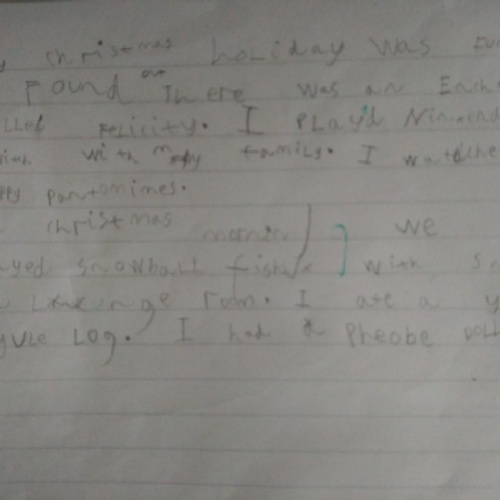 y christmas holiday was fun
I Found out There was an Ench
lled Felicity. I PLayd Ninnend
with with my family. I watche
ppy pantomimes.
christmas morning we
ayed snowball fights with sn
room. I ate a y
yule Log. I had a Pheobe doll